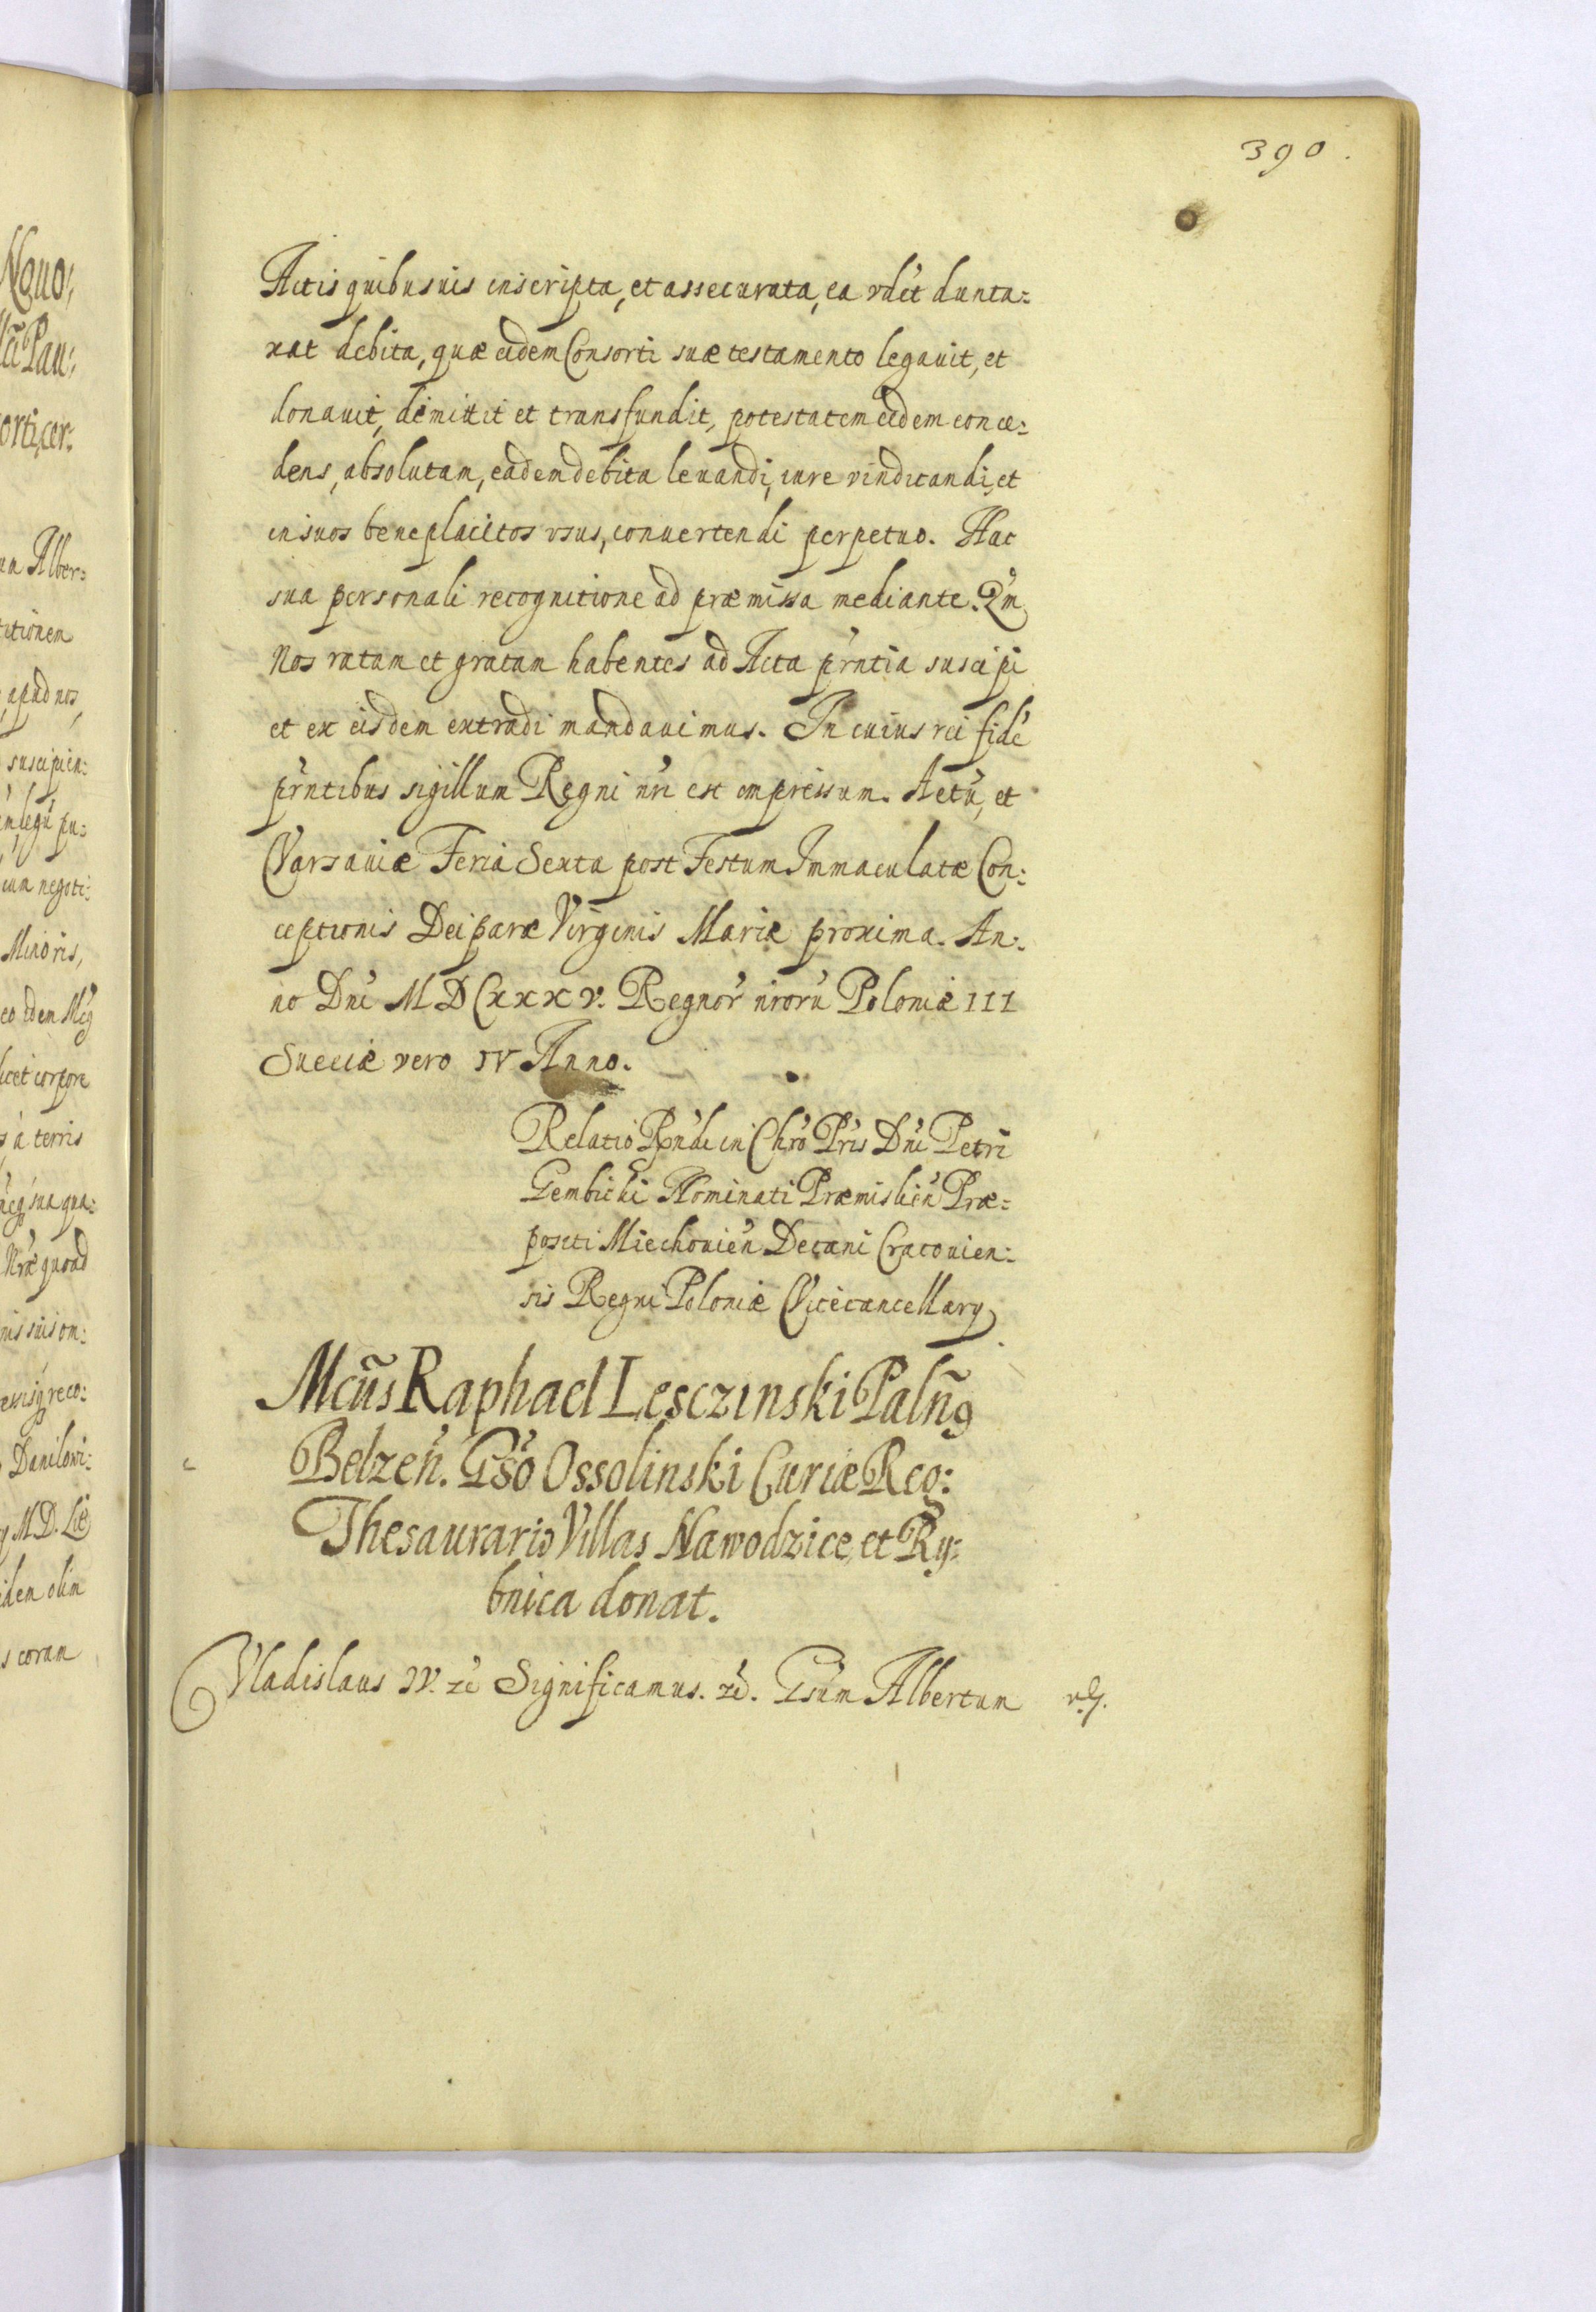 390.
Actis quibusuis inscripta, et assecurata, ea vdĕt dunta:
xat debita, quæ eidem Consorti suæ testamento legauit, et
donauit, dimittit et transfundit, potestatem eidem conce:
dens, absolutam, eadem debita leuandi, iure vindicandi, et
in suos beneplacitos vsus, conuertendi perpetuo. Hac
sua personali recognitione ad præmissa mediante. Qm̃
Nos ratam et gratam habentes ad Acta pr̃ntia suscipi
et ex eisdem extradi mandauimus. In cuius rei fidẽ
pr̃ntibus sigillum Regni nr̃i est impressum. Actũ, et
Varsauiæ Feria Sexta post Festum Immaculatæ Con:
ceptionis Deiparæ Virginis Mariæ proxima. An:
no Dnĩ MDCxxxv. Regnor̃ nr̃orũ Poloniæ III
Sueciæ vero IV Anno.
Relatio Rñdi in Chr̃o Pr̃is Dnĩ Petri
Gembicki Nominati Præmislieñ Præ:
positi Miechouieñ Decani Cracouien:
sis Regni Poloniæ Vicecancellarÿ
Mcũs Raphael Lesczinski Palñg
Belzeñ. Gs̃o Ossolinski Curiæ Reg:
Thesaurario Villas Nawodzice, et Ry:
bnica donat.
Vladislaus IV. zc̃ Significamus. zc̃. Gsũm Albertum
Nquo:
Pau:
orti, cer:
Alber:
titionem
apud nos,
suscipien:
legũ pu:
cum negoti:
Minoris,
eo idem Mcg̃
licet corpore
à terris
sua qua:
Nr̃æ quoad
nis suis om:
reco:
Danilowi:
MD. Lit̃
idem olim
s coram